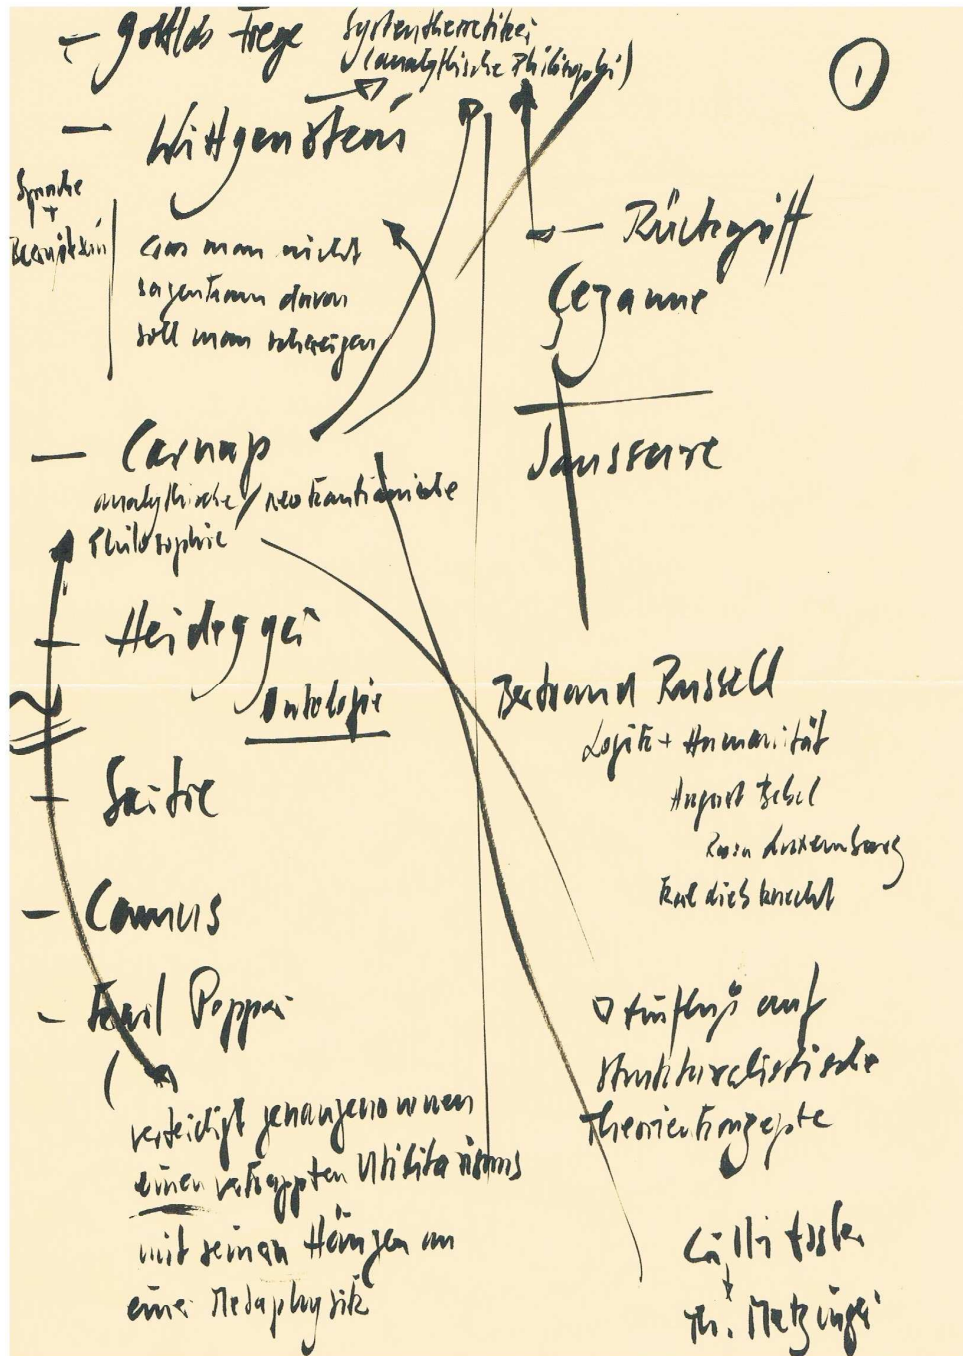 – Gottlob Frege
Systemtheoretiker
(analythische Philosophie)
1
– Wittgenstein
Sprache
+
Bewußtsein
was man nicht
sagen kann davon
soll man schweigen
– Rückgriff
Cezanne
Saussure
– Carnap
analythische / neokantianische
Philosophie
– Heidegger
Ontologie
– Sartre
– Camus
– Karl Popper
( verteidigt genaugenommen
einen verkappten Utilitarismus
mit seinen Hängen an
einer Metaphysik
Bertrand Russell
Logik + Humanität
August Bebel
Rosa Luxemburg
Karl Liebknecht
Einfluß auf
strukturalistische
Theoriekonzepte
Th. Metzinger